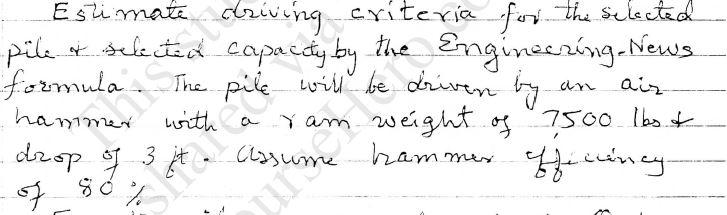 Estimate driving criteria for the selected
pile & selected capacity by the Engineering-News
formula. The pile will be driven by an air
hammer with a ram weight of 7500 lbs &
drop of 3 ft. Assume hammer efficiency
of 80%